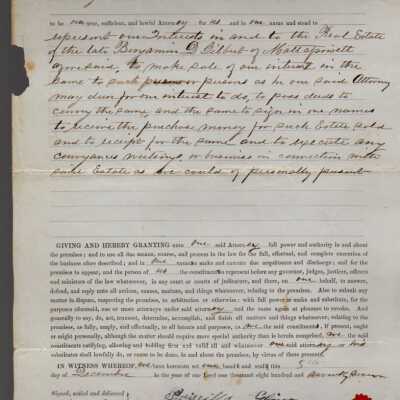 to be our true, sufficient, and lawful Attorney for us and in our name and stead to
represent our Interests in and to the Real Estate
of the late Benjamin D. of Mattapoisett
aforesaid, to make sale of our interest in the
same to such person or persons as he our said Attorney
may deem for our interest to do, to pass deeds to
convey the same, and the same to sign in our names
to receive the purchase money for such Estate sold
and to receipt for the same and to execute any
conveyances writings, or business in connection with
said Estate as we could if personally present
GIVING AND HEREBY GRANTING unto our said Attorney full power and authority in and about
the premises; and to use all due means, course, and process in the law for the full, effectual, and complete execution of
the business afore described; and in our names make and execute due acquittance and discharge; and for the
premises to appear, and the person of us the constituents represent before any governor, judges, justices, officers
and ministers of the law whatsoever, in any court or courts of judicature, and there, on our behalf, to answer,
defend, and reply unto all actions, causes, matters, and things whatsoever, relating to the premises. Also to submit any
matter in dispute, respecting the premises, to arbitration or otherwise: with full power to make and substitute, for the
purposes aforesaid, one or more attorneys under said attorney and the same again at pleasure to revoke. And
generally to say, do, act, transact, determine, accomplish, and finish all matters and things whatsoever, relating to the
premises, as fully, amply, and effectually, to all intents and purposes, as we the said constituents if present, ought
or might personally, although the matter should require more special authority than is herein comprised, we the said
constituents ratifying, allowing and holding firm and valid all and whatsoever our said attorney or his
substitutes shall lawfully do, or cause to be done, in and about the premises, by virtue of these presents.
IN WITNESS WHEREOF, we have hereunto set our hands and seals this
day of December in the year of our Lord one thousand eight hundred and seventy seven
Signed, sealed and delivered
Priscilla